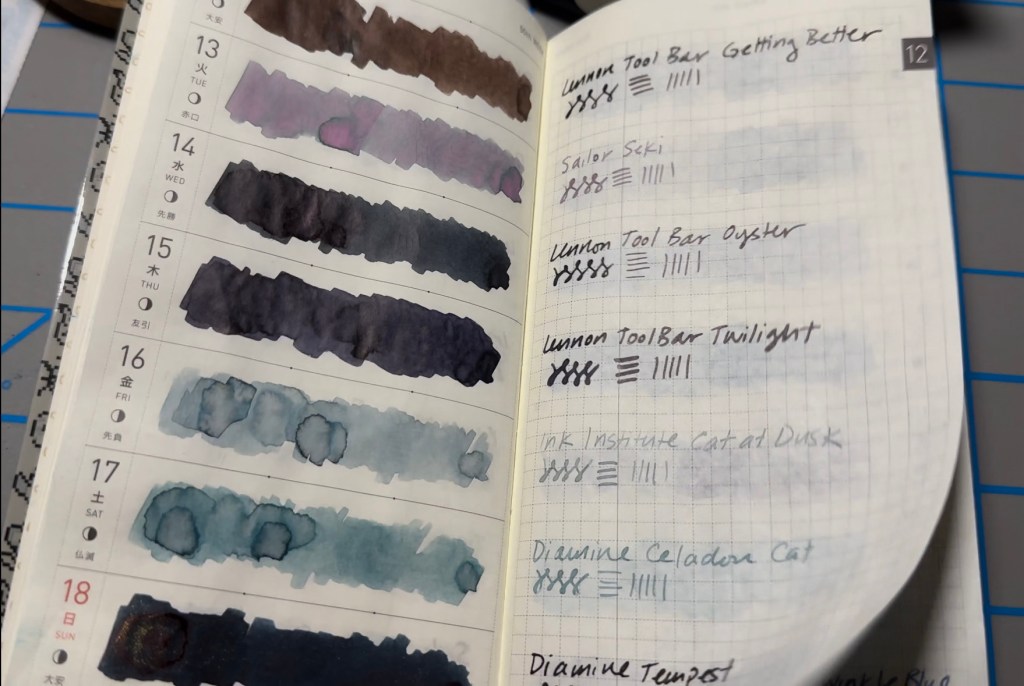 大安
13
火
TUE
赤口
14
水
WED
先勝
15
木
THU
友引
16
金
FRI
先負
17
土
SAT
仏滅
18
日
SUN
大安
12
Lennon Tool Bar Getting Better
Sailor Seki
Lennon Tool Bar Oyster
Lennon ToolBar Twilight
Ink Institute Cat at Dusk
Diamine Celadon Cat
Diamine Tempest